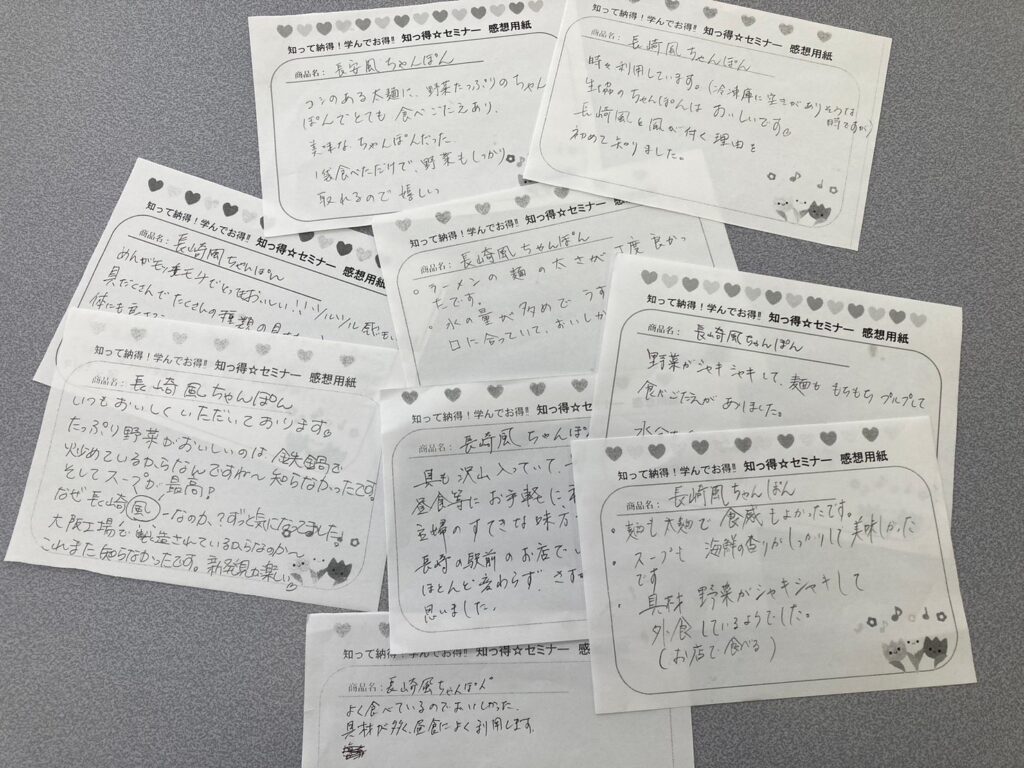 知って納得！学んでお得!! 知っ得☆セミナー 感想用紙
商品名： 長安風ちゃんぽん
コシのある太麺に、野菜たっぷりのちゃん
ぽんでとても 食べごたえあり、
美味な、ちゃんぽんだった
1袋食べただけで、野菜もしっかり
取れるので嬉しい
知って納得！学んでお得!! 知っ得☆セミナー 感想用紙
商品名： 長崎風ちゃんぽん
時々利用しています。(冷凍庫に空きがありそうな
時ですが)
生協のちゃんぽんは おいしいです。
長崎風と風が付く理由を
初めて知りました。
知って納得！学んでお得!! 知っ得☆セミナー 感想用紙
商品名： 長崎風ちゃんぽん
めんがモチモチでとてもおいしい!!ツルツル
具だくさんでたくさんの種類の具
体にも
知って納得！学んでお得!! 知っ得☆セミナー
商品名： 長崎風ちゃんぽん
。ラーメンの麺の太さが 丁度良かっ
たです。
。水の量が多めで うす
口に合っていて、おいしか
知って納得！学んでお得!! 知っ得☆セミナー 感想用紙
商品名： 長崎風ちゃんぽん
野菜がシャキシャキして、麺も もちもち プルプルして
食べごたえがありました。
知って納得！学んでお得!! 知っ得☆セミナー 感想用紙
商品名： 長崎風ちゃんぽん
いつもおいしくいただいております。
たっぷり野菜がおいしいのは 鉄鍋で
炒めているからなんですね〜 知らなかったです。
そしてスープが最高!
なぜ長崎風ーなのか、?ずっと気になってました。
大阪工場で製造されているからなのか〜
これまた知らなかったです。新発見が楽しい
知って納得！学んでお得!! 知っ得☆セミ
商品名： 長崎風ちゃんぽん
具も沢山入っていて、
昼食等にお手軽に
主婦のすてきな味方
長崎の駅前のお店で
ほとんど変わらず、さす
思いました。
知って納得！学んでお得!! 知っ得☆セミナー 感想用紙
商品名： 長崎風ちゃんぽん
・麺も太麺で 食感もよかったです。
・スープも 海鮮の香りがしっかりして美味しかった
です
・具材 野菜がシャキシャキして
外食しているようでした。
(お店で食べる)
知って納得！学んでお得!! 知っ得☆セミナー 感想用紙
商品名： 長崎風ちゃんぽん
よく食べているのでおいしかった。
具材が多く、昼食によく利用します。